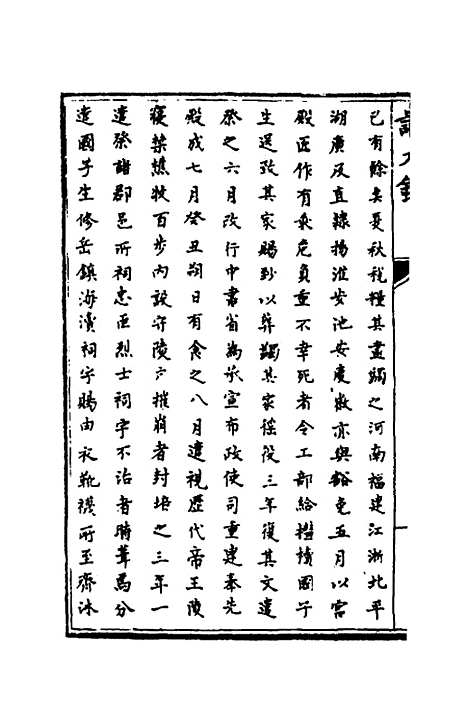 已有餘矣夏秋稅糧其盡蠲之河南福建江浙北平
湖廣及直隸揚淮安池安慶徽亦與豁免五月以宮
殿匠作有乘危負重不幸死者令工部給槥櫝國子
生送致其家賜鈔以葬蠲其家徭役三年復其文遣
祭之六月改行中書省為承宣布政使司重建奉先
殿成七月癸丑朔日有食之八月遣視歷代帝王陵
寢禁樵牧百步內設守陵戶摧崩者封培之三年一
遣祭諸郡邑所祠忠臣烈士祠宇不治者脩葺焉分
遣國子生修岳鎮海瀆祠宇賜由衣靴襪所至齋沐